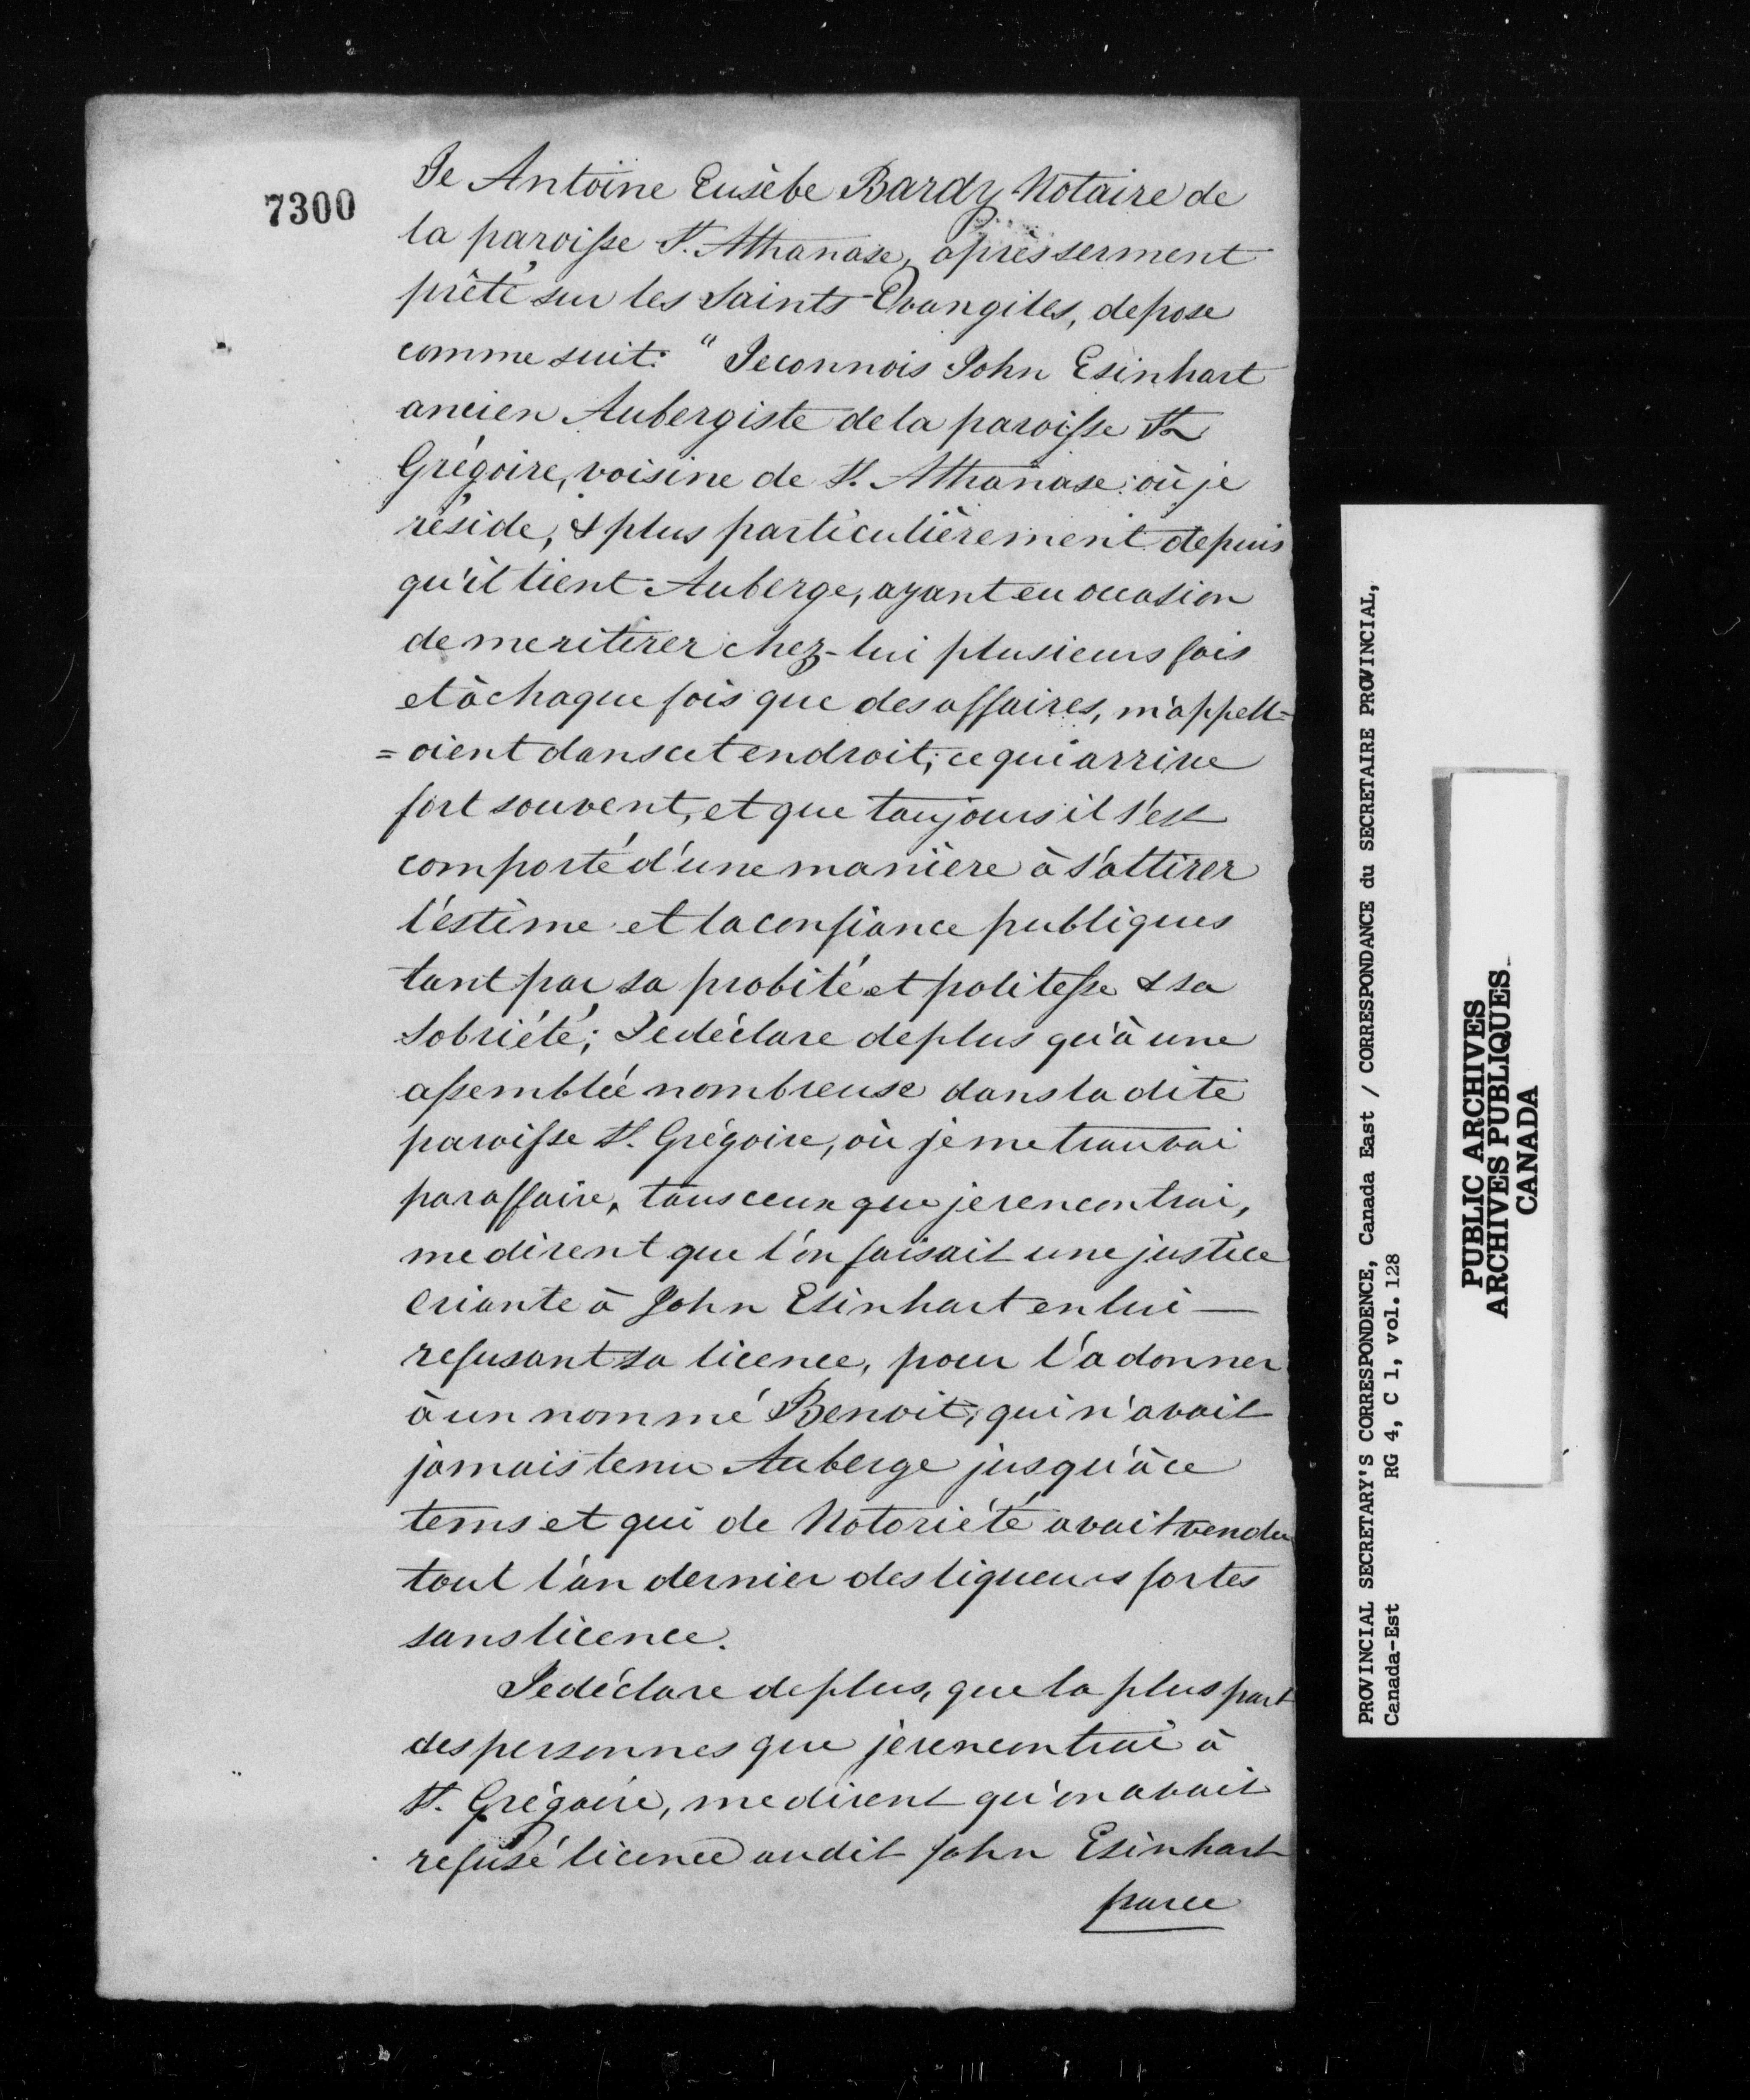 7300
Je Antoine Eusèbe Bardy Notaire de
la paroisse St. Athanase, après serment
prêté sur les Saints Evangiles, depose
comme suit: "Je connois John Esinhart
ancien Aubergiste de la paroisse St
Grégoire, voisine de St. Athanase où je
réside, & plus particulièrement depuis
qu'il tient Auberge, ayant eu occasion
de me ritirer chez-lui plusieurs fois
et à chaque fois que des affaires, m'appell=
=oient dans cet endroit; ce qui arrive
fort souvent, et que toujours il s'est
comporté d'une manière à s'attirer
l'estime et la confiance publiques
tant par sa probité et politesse & sa
Sobriété; Je déclare de plus qu'à une
assemblée nombreuse dans la dite
paroisse St. Grégoire, où je me trouvai
par affaire, tous ceux que je rencontrai,
me dirent que l'on faisait une justice
criante à John Esinhart en lui —
refusant sa licence, pour l'a donner
à un nommé Benoit, qui n'avait
jamais tenu Auberge jusqu'à ce
tems et qui de Notoriété avait vendu
tout l'an dernier des liqueurs fortes
sans licence.
Je déclare de plus, que la plus part
des personnes que je rencontrai à
St. Grégoire, me dirent qu'on avait
refusé licence audit John Esinhart
parce
PROVINCIAL SECRETARY'S CORRESPONDENCE, Canada East / CORRESPONDANCE du SECRETAIRE PROVINCIAL,
Canada-Est RG 4, C 1, vol. 128
PUBLIC ARCHIVES
ARCHIVES PUBLIQUES
CANADA